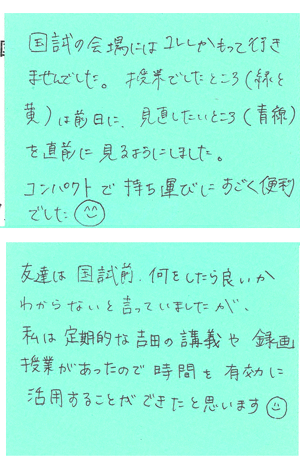 国試の会場にはコレしかもって行き
ませんでした。授業でしたところ(緑と
黄)は前日に、見直したいところ(青線)
を直前に見るようにしました。
コンパクトで持ち運びにすごく便利
でした
友達は国試前、何をしたら良いか
わからないと言っていましたが、
私は定期的な吉田の講義や録画
授業があったので時間を有効に
活用することができたと思います